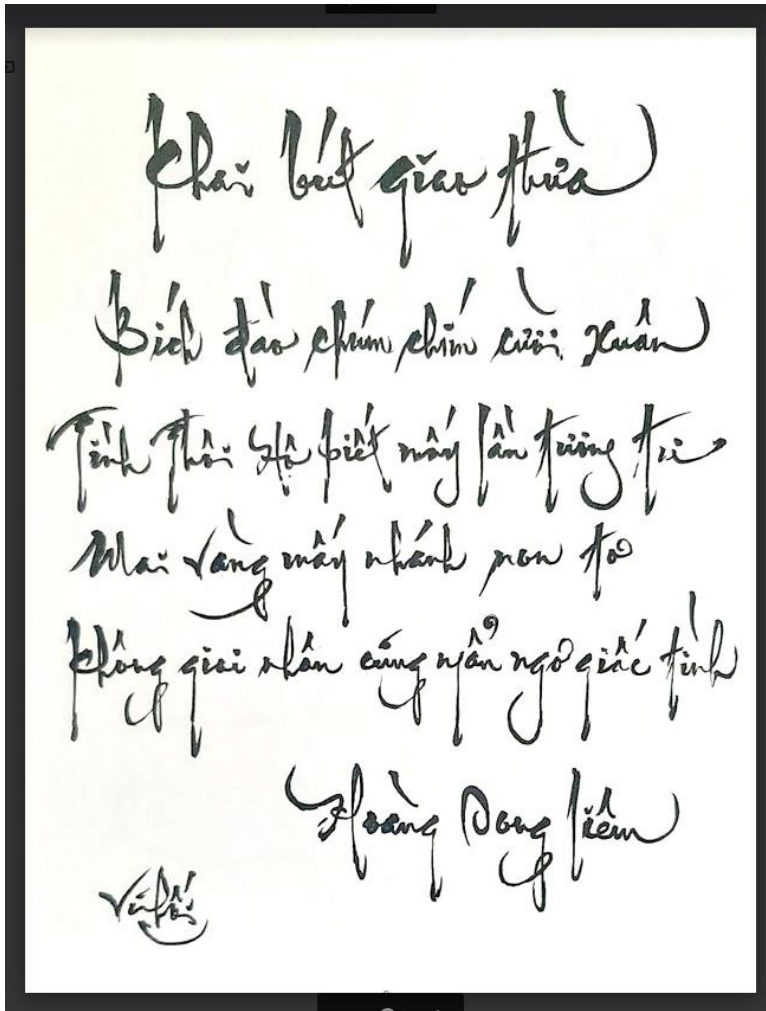 Khai bút giao thừa
Bích đào chúm chím cười xuân
Tình Thôi Hộ biết mấy lần tương tư
Mai vàng mấy nhánh non tơ
Không giai nhân cũng ngẩn ngơ giấc tình
Hoàng Song Liêm